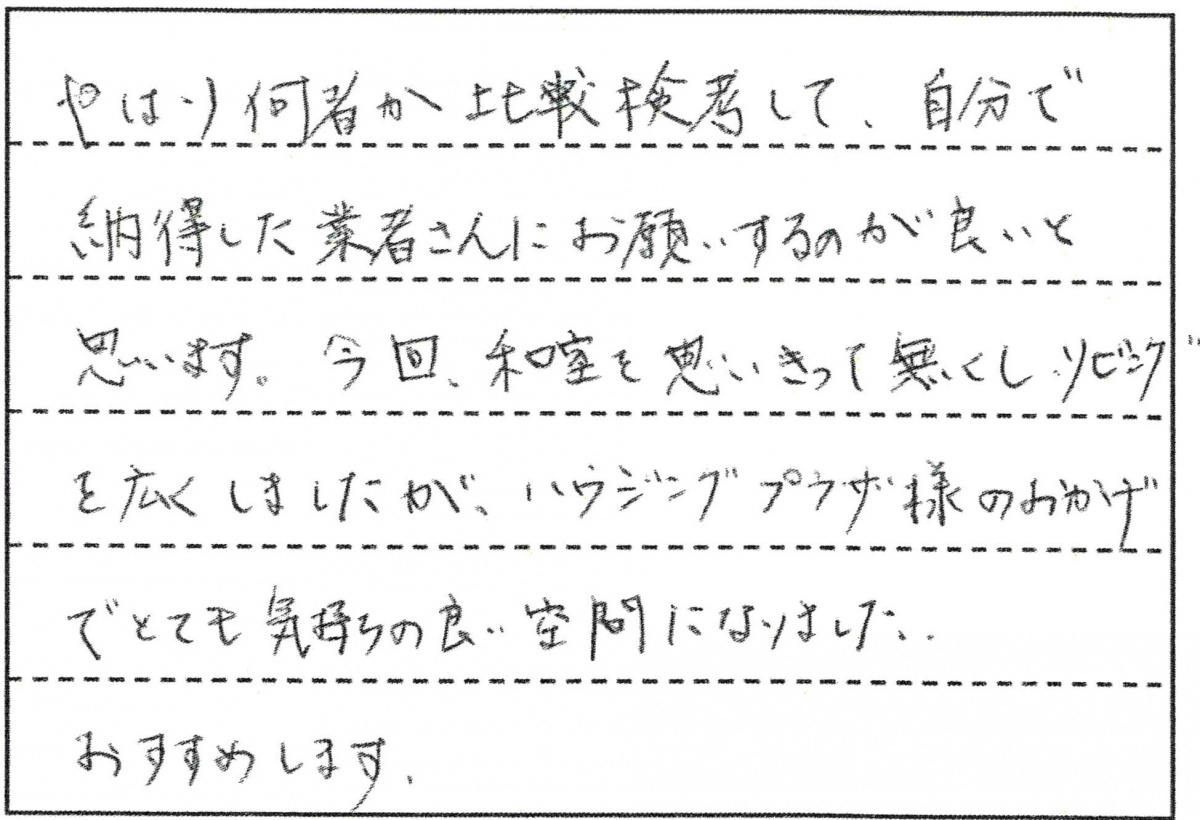 やはり何者か比較検考して、自分で
納得した業者さんにお願いするのが良いと
思います。今回、和室を思いきって無くし、リビング
を広くしましたが、ハウジングプラザ様のおかげ
でとても気持ちの良い空間になりました。
おすすめします。